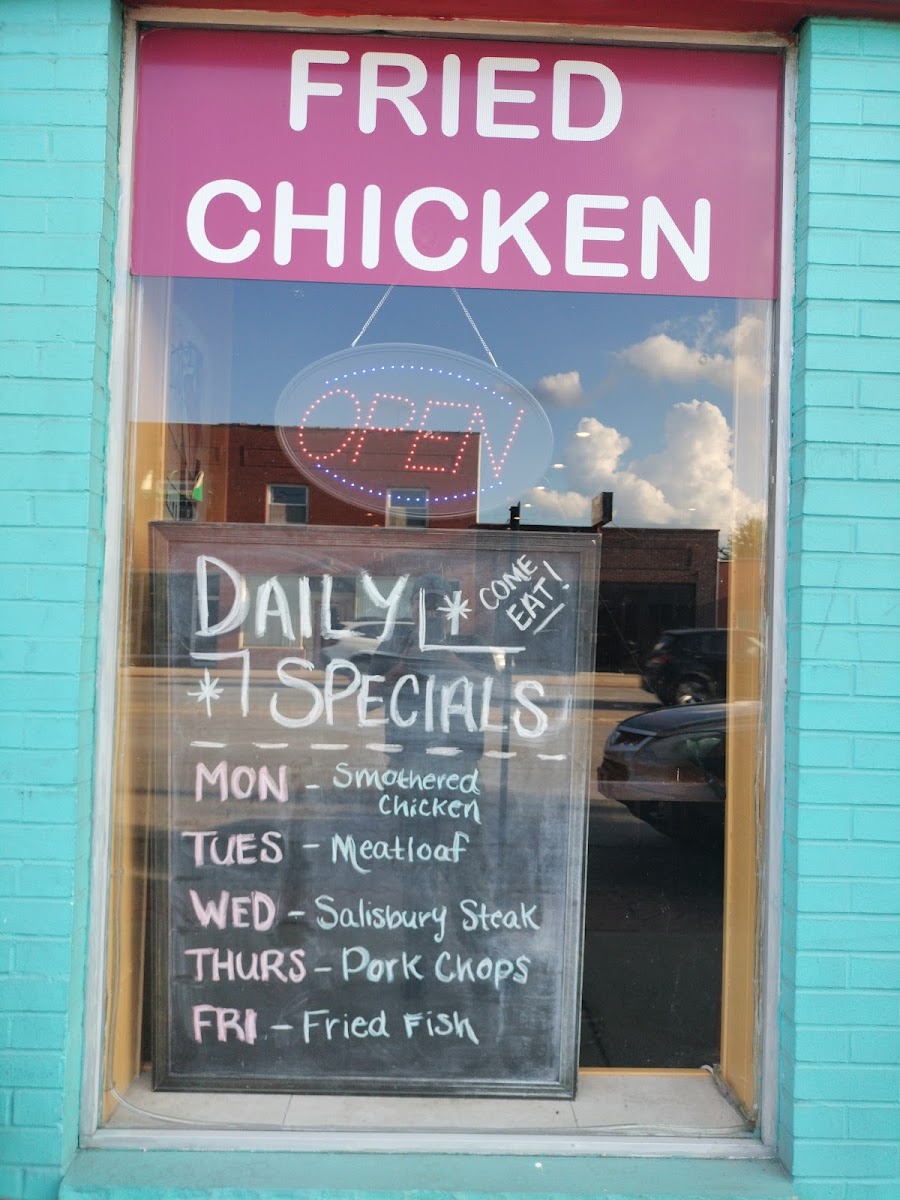 FRIED
CHICKEN
OPEN
DAILY
* COME
EAT!
* SPECIALS
MON - Smothered
Chicken
TUES - Meatloaf
WED - Salisbury Steak
THURS - Pork Chops
FRI - Fried Fish